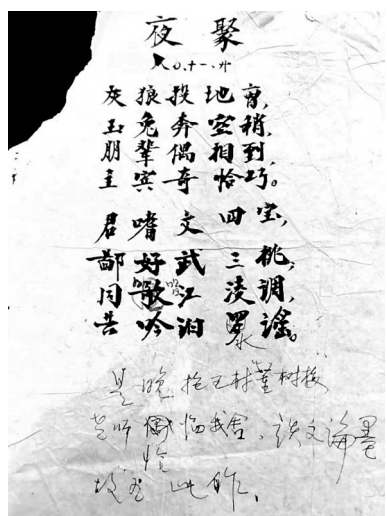 夜聚
八〇.十一.廿
灰狼投地,
玉兔奔空稍,
朋辈偶相到,
主宾奇恰巧。
君嗜文四宝,
鄙好武三桃,
同歌江凌调,
吟汨罗谣。
是晚 村董树
老师偶临我舍、谈文论墨
恰
故 此作、